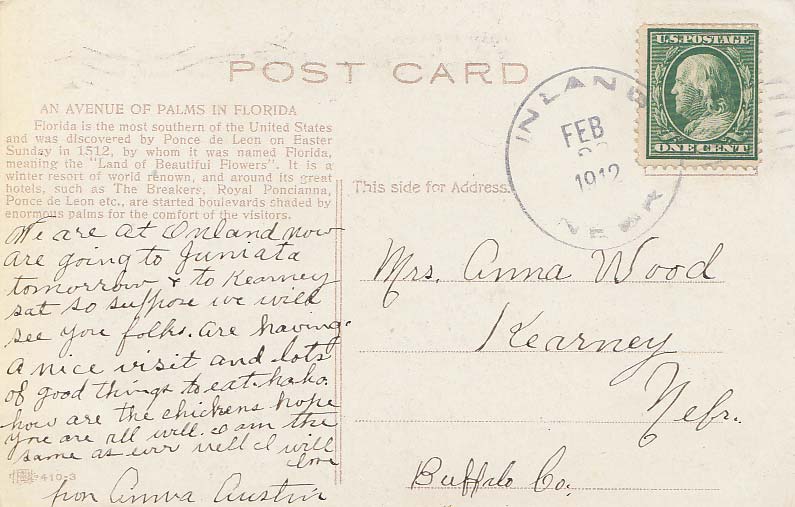 POST CARD
U.S. POSTAGE
ONE CENT
INLAND
FEB
1912
NEBR
AN AVENUE OF PALMS IN FLORIDA
Florida is the most southern of the United States
and was discovered by Ponce de Leon on Easter
Sunday in 1512, by whom it was named Florida,
meaning the "Land of Beautiful Flowers". It is a
winter resort of world renown, and around its great
hotels, such as The Breakers, Royal Poncianna,
Ponce de Leon etc., are started boulevards shaded by
enormous palms for the comfort of the visitors.
This side for Address.
We are at Inland now
are going to Juniata
tomorrow & to Kearney
sat so suppose we will
see you folks. are having
a nice visit and lots
of good things to eat. ha ha.
how are the chickens hope
you are all well. I am the
same as ever well I will
close
from Anna Austin
410-3
Mrs. Anna Wood
Kearney
Nebr.
Buffalo Co.